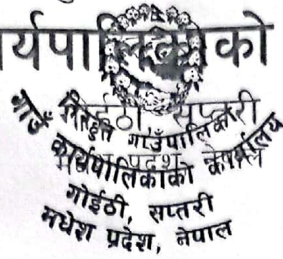 र्यपालिकाको
गोईठी सप्तरी
मधेश प्रदेश
तिरहुत गाउँपालिका
गाउँ कार्यपालिकाको कार्यालय
गोईठी, सप्तरी
मधेश प्रदेश, नेपाल